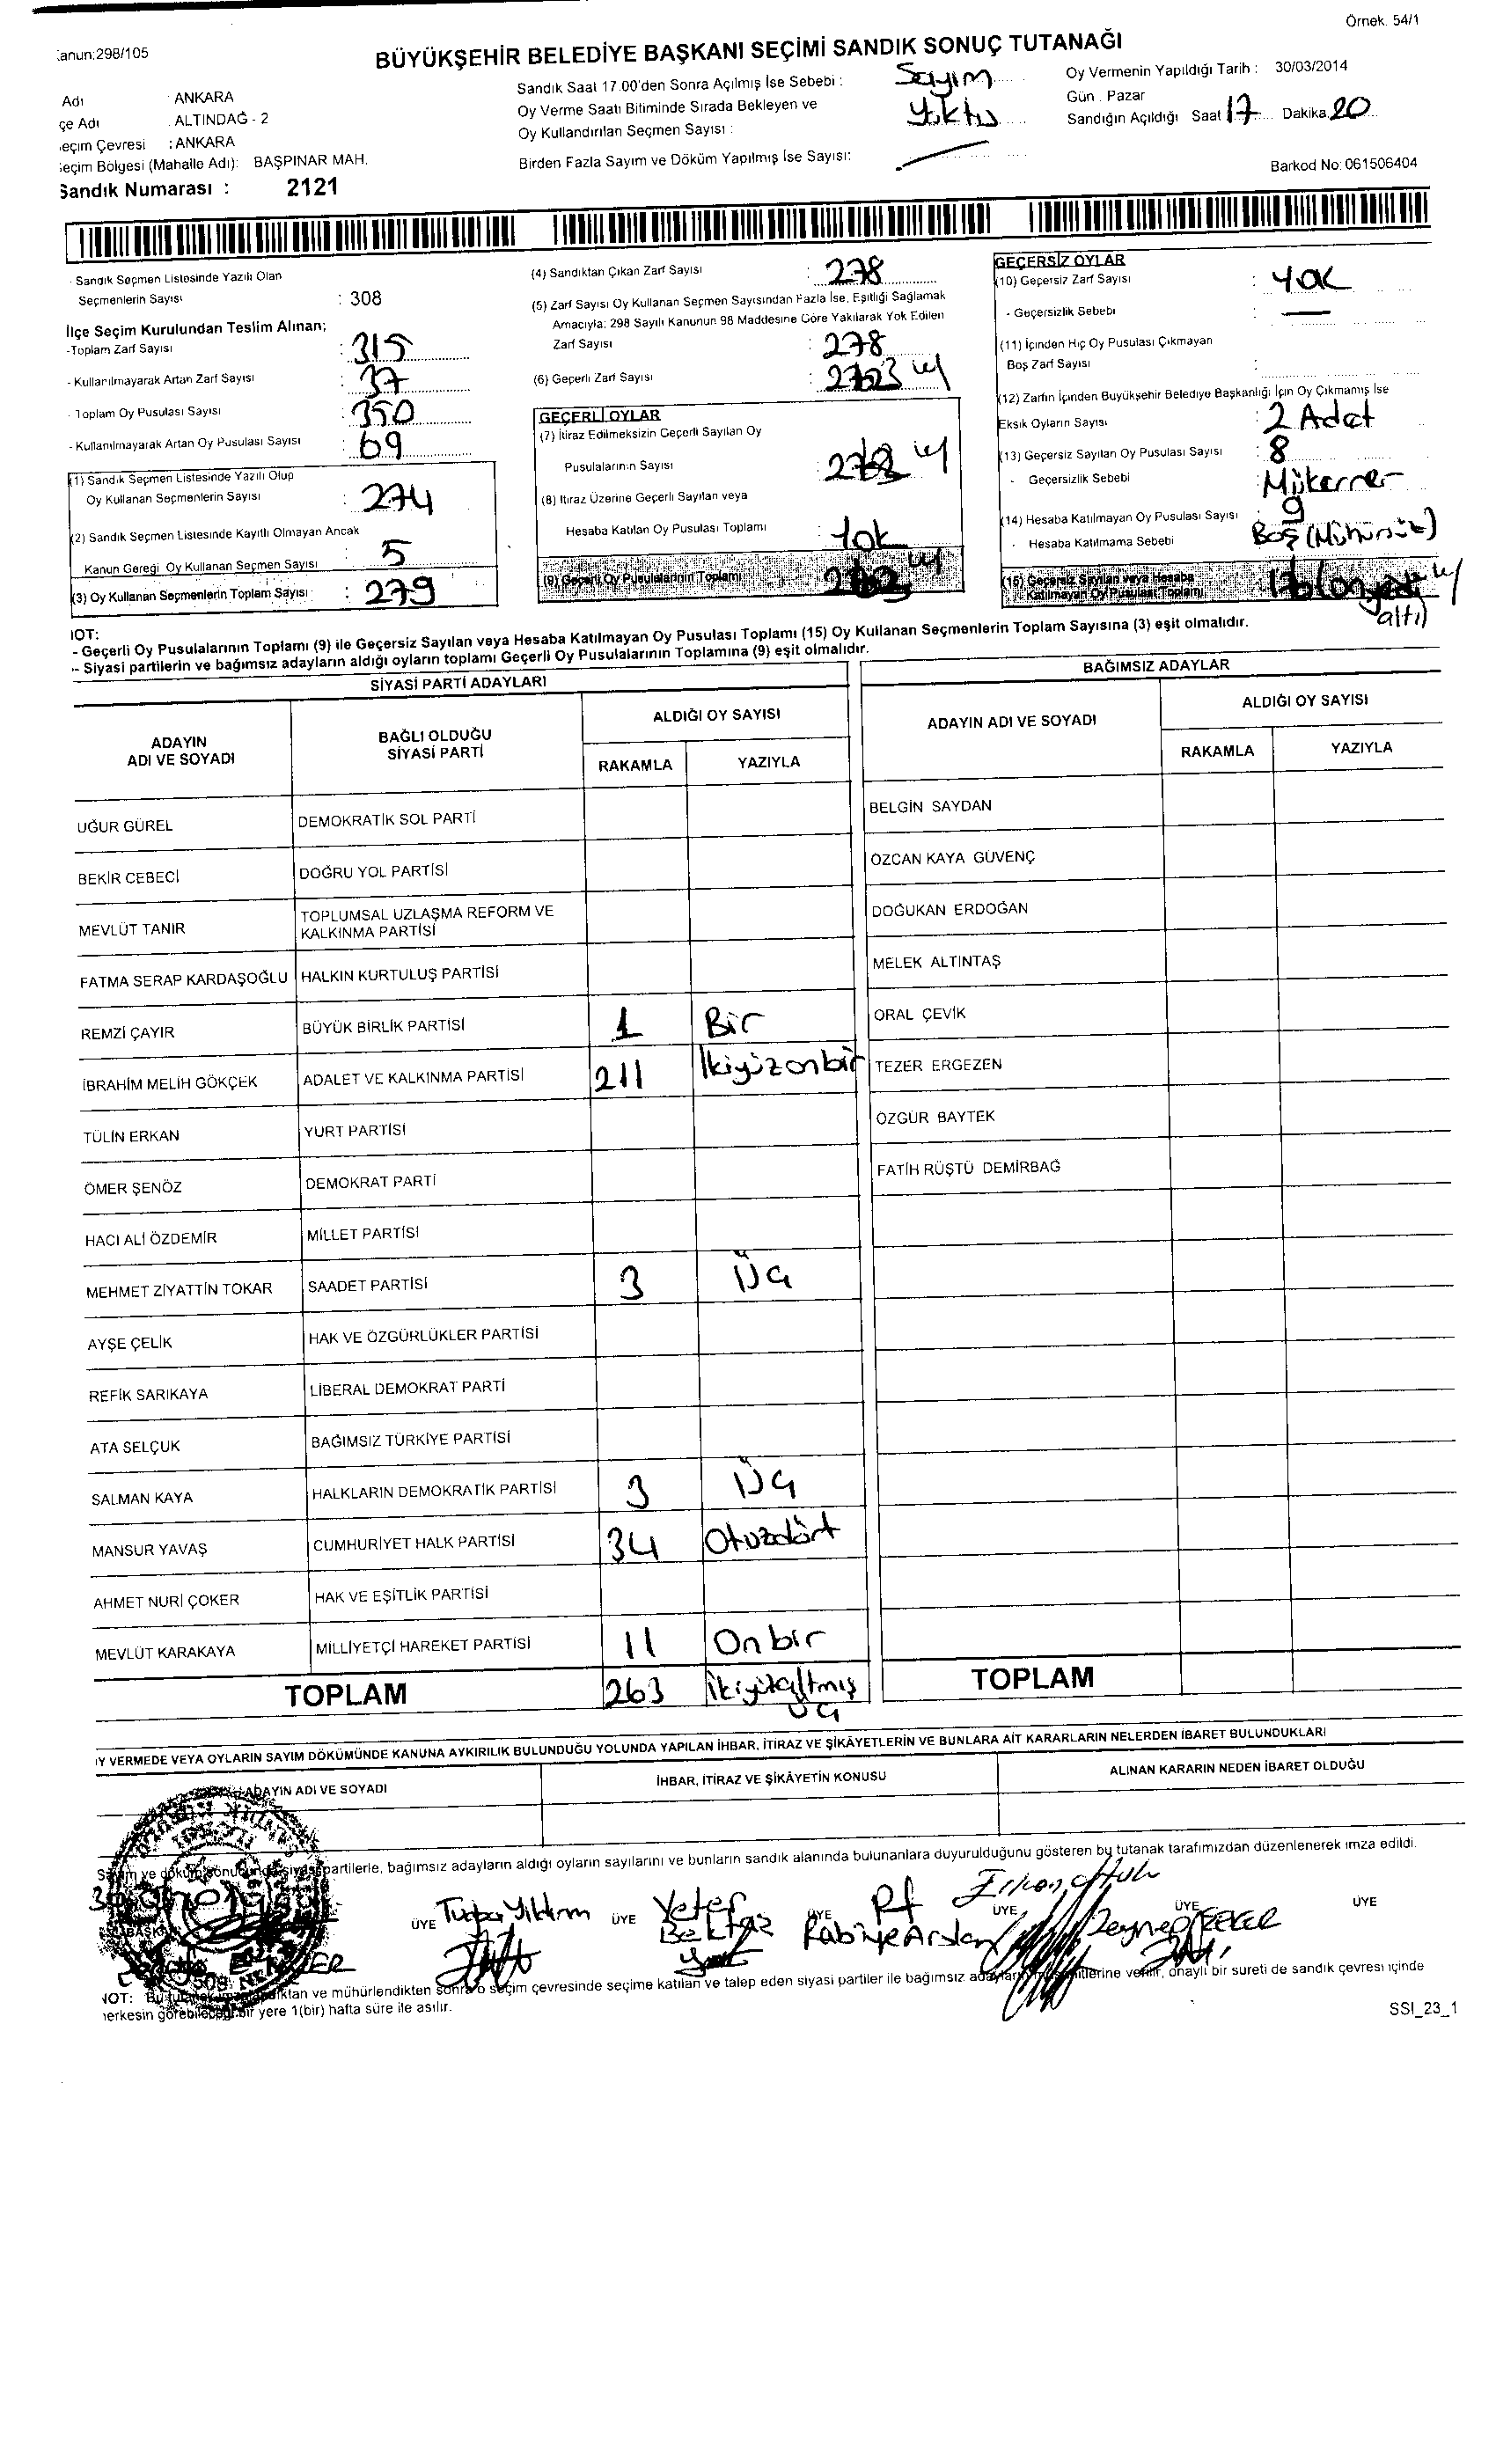 Örnek. 54/1
anun:298/105
BÜYÜKŞEHİR BELEDİYE BAŞKANI SEÇİMİ SANDIK SONUÇ TUTANAĞI
Adı : ANKARA
çe Adı : ALTINDAĞ - 2
eçim Çevresi : ANKARA
eçim Bölgesi (Mahalle Adı): BAŞPINAR MAH.
Sandık Numarası : 2121
Sandık Saat 17.00'den Sonra Açılmış İse Sebebi : Sayım
Oy Verme Saati Bitiminde Sırada Bekleyen ve
Oy Kullandırılan Seçmen Sayısı : Yoktu
Birden Fazla Sayım ve Döküm Yapılmış İse Sayısı: —
Oy Vermenin Yapıldığı Tarih : 30/03/2014
Gün : Pazar
Sandığın Açıldığı Saat 17 Dakika 20
Barkod No: 061506404
- Sandık Seçmen Listesinde Yazılı Olan
Seçmenlerin Sayısı : 308
İlçe Seçim Kurulundan Teslim Alınan;
-Toplam Zarf Sayısı : 315
- Kullanılmayarak Artan Zarf Sayısı : 37
- Toplam Oy Pusulası Sayısı : 350
- Kullanılmayarak Artan Oy Pusulası Sayısı : 69
(1) Sandık Seçmen Listesinde Yazılı Olup
Oy Kullanan Seçmenlerin Sayısı : 274
(2) Sandık Seçmen Listesinde Kayıtlı Olmayan Ancak
Kanun Gereği Oy Kullanan Seçmen Sayısı : 5
(3) Oy Kullanan Seçmenlerin Toplam Sayısı : 279
(4) Sandıktan Çıkan Zarf Sayısı : 278
(5) Zarf Sayısı Oy Kullanan Seçmen Sayısından Fazla İse, Eşitliği Sağlamak
Amacıyla; 298 Sayılı Kanunun 98 Maddesine Göre Yakılarak Yok Edilen
Zarf Sayısı : 278
(6) Geçerli Zarf Sayısı :
GEÇERLİ OYLAR
(7) İtiraz Edilmeksizin Geçerli Sayılan Oy
Pusulalarının Sayısı :
(8) İtiraz Üzerine Geçerli Sayılan veya
Hesaba Katılan Oy Pusulası Toplamı : Yok
(9) Geçerli Oy Pusulalarının Toplamı
GEÇERSİZ OYLAR
(10) Geçersiz Zarf Sayısı : Yok
- Geçersizlik Sebebi : —
(11) İçinden Hiç Oy Pusulası Çıkmayan
Boş Zarf Sayısı :
(12) Zarfın İçinden Büyükşehir Belediye Başkanlığı İçin Oy Çıkmamış İse
Eksik Oyların Sayısı : 2 Adet
(13) Geçersiz Sayılan Oy Pusulası Sayısı : 8
- Geçersizlik Sebebi Mükerrer
(14) Hesaba Katılmayan Oy Pusulası Sayısı : 9
- Hesaba Katılmama Sebebi Boş (Mühürsüz)
(15) Geçersiz Sayılan veya Hesaba
Katılmayan Oy Pusulası Toplamı
altı)
NOT:
- Geçerli Oy Pusulalarının Toplamı (9) ile Geçersiz Sayılan veya Hesaba Katılmayan Oy Pusulası Toplamı (15) Oy Kullanan Seçmenlerin Toplam Sayısına (3) eşit olmalıdır.
- Siyasi partilerin ve bağımsız adayların aldığı oyların toplamı Geçerli Oy Pusulalarının Toplamına (9) eşit olmalıdır.
SİYASİ PARTİ ADAYLARI
BAĞIMSIZ ADAYLAR
ADAYIN ADI VE SOYADI
BAĞLI OLDUĞU SİYASİ PARTİ
ALDIĞI OY SAYISI
RAKAMLA YAZIYLA
ADAYIN ADI VE SOYADI
ALDIĞI OY SAYISI
RAKAMLA YAZIYLA
UĞUR GÜREL DEMOKRATİK SOL PARTİ
BEKİR CEBECİ DOĞRU YOL PARTİSİ
MEVLÜT TANIR TOPLUMSAL UZLAŞMA REFORM VE KALKINMA PARTİSİ
FATMA SERAP KARDAŞOĞLU HALKIN KURTULUŞ PARTİSİ
REMZİ ÇAYIR BÜYÜK BİRLİK PARTİSİ 1 Bir
İBRAHİM MELİH GÖKÇEK ADALET VE KALKINMA PARTİSİ 211 İkiyüzonbir
TÜLİN ERKAN YURT PARTİSİ
ÖMER ŞENÖZ DEMOKRAT PARTİ
HACI ALİ ÖZDEMİR MİLLET PARTİSİ
MEHMET ZİYATTİN TOKAR SAADET PARTİSİ 3 Üç
AYŞE ÇELİK HAK VE ÖZGÜRLÜKLER PARTİSİ
REFİK SARIKAYA LİBERAL DEMOKRAT PARTİ
ATA SELÇUK BAĞIMSIZ TÜRKİYE PARTİSİ
SALMAN KAYA HALKLARIN DEMOKRATİK PARTİSİ 3 Üç
MANSUR YAVAŞ CUMHURİYET HALK PARTİSİ 34 Otuzdört
AHMET NURİ ÇOKER HAK VE EŞİTLİK PARTİSİ
MEVLÜT KARAKAYA MİLLİYETÇİ HAREKET PARTİSİ 11 Onbir
TOPLAM 263 İkiyüzaltmış üç
BELGİN SAYDAN
ÖZCAN KAYA GÜVENÇ
DOĞUKAN ERDOĞAN
MELEK ALTINTAŞ
ORAL ÇEVİK
TEZER ERGEZEN
ÖZGÜR BAYTEK
FATİH RÜŞTÜ DEMİRBAĞ
TOPLAM
Y VERMEDE VEYA OYLARIN SAYIM DÖKÜMÜNDE KANUNA AYKIRILIK BULUNDUĞU YOLUNDA YAPILAN İHBAR, İTİRAZ VE ŞİKÂYETLERİN VE BUNLARA AİT KARARLARIN NELERDEN İBARET BULUNDUKLARI
ADAYIN ADI VE SOYADI
İHBAR, İTİRAZ VE ŞİKÂYETİN KONUSU
ALINAN KARARIN NEDEN İBARET OLDUĞU
Sayım ve döküm sonucunda siyasi partilerle, bağımsız adayların aldığı oyların sayılarını ve bunların sandık alanında bulunanlara duyurulduğunu gösteren bu tutanak tarafımızdan düzenlenerek imza edildi.
ÜYE Tuğba Yıldırım
ÜYE Yeter Bektaş
ÜYE Rabiye Arslan
ÜYE
ÜYE Zeynep
ÜYE
NOT: Bu tutanak ve mühürlendikten sonra o seçim çevresinde seçime katılan ve talep eden siyasi partiler ile bağımsız verilir, onaylı bir sureti de sandık çevresi içinde
herkesin görebileceği bir yere 1(bir) hafta süre ile asılır.
SSI_23_1